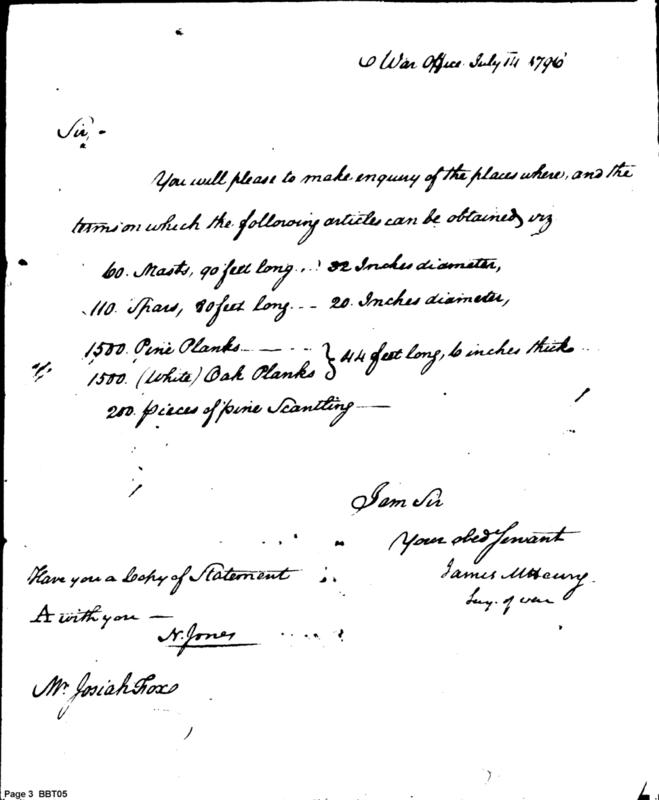 War Office July 14 1796
Sir, -
You will please to make enquiry of the places where, and the
terms on which the following articles can be obtained, viz
60. Masts, 90 feet long ... 32 Inches diameter,
110. Spars, 80 feet long --- 20. Inches diameter,
1500. Pine Planks - - - -
1500. (White) Oak Planks } 44 feet long, 6 inches thick
200. pieces of pine Scantling —
I am Sir
Your obed Servant
James McHenry.
Secy. of War
Have you a Copy of Statement
A with you —
N. Jones
Mr. Josiah Fox
Page 3 BBT05